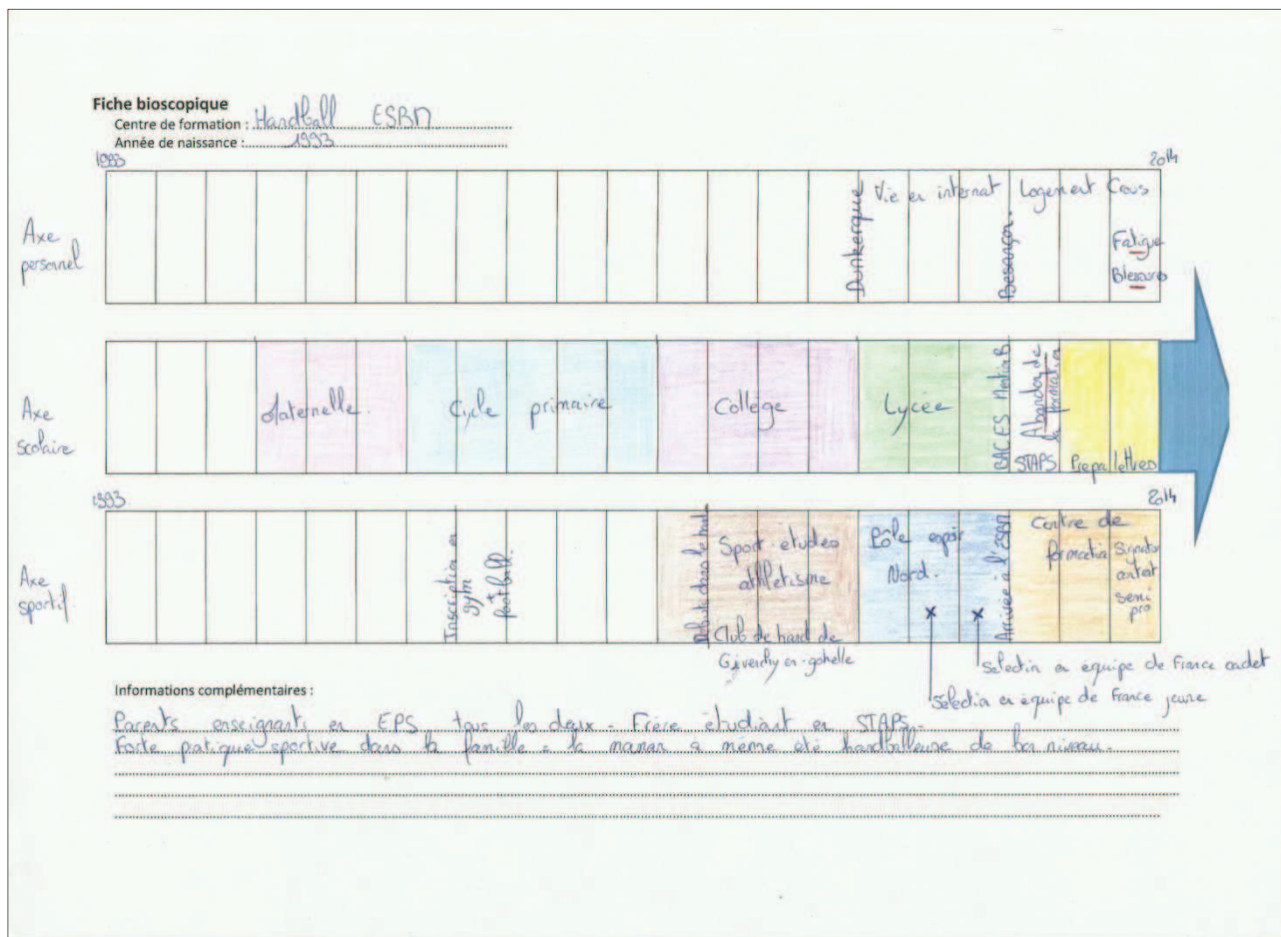 Fiche bioscopique
Centre de formation : Handball ESBM
Année de naissance : 1993
1993
2014
Axe personnel
Dunkerque
Vie en internat
Besançon.
Logement Crous
Fatigue
Blessures
Axe scolaire
Maternelle.
Cycle primaire
Collège
Lycée
BAC ES Mention B
STAPS
Abandon de la formation
Prépa lettres
1993
2014
Axe sportif.
Inscription en gym + football.
Débuts dans le hand.
Sport-études
athlétisme
Club de hand de
Givenchy-en-gohelle
Pôle espoir
Nord.
Arrivée à l'ESBM
Centre de
formation
Signature
contrat
semi
pro
Sélection en équipe de France cadet
Sélection en équipe de France jeune
Informations complémentaires :
Parents enseignants en EPS tous les deux - Frère étudiant en STAPS.
Forte pratique sportive dans la famille : la maman a même été handballeuse de bon niveau.